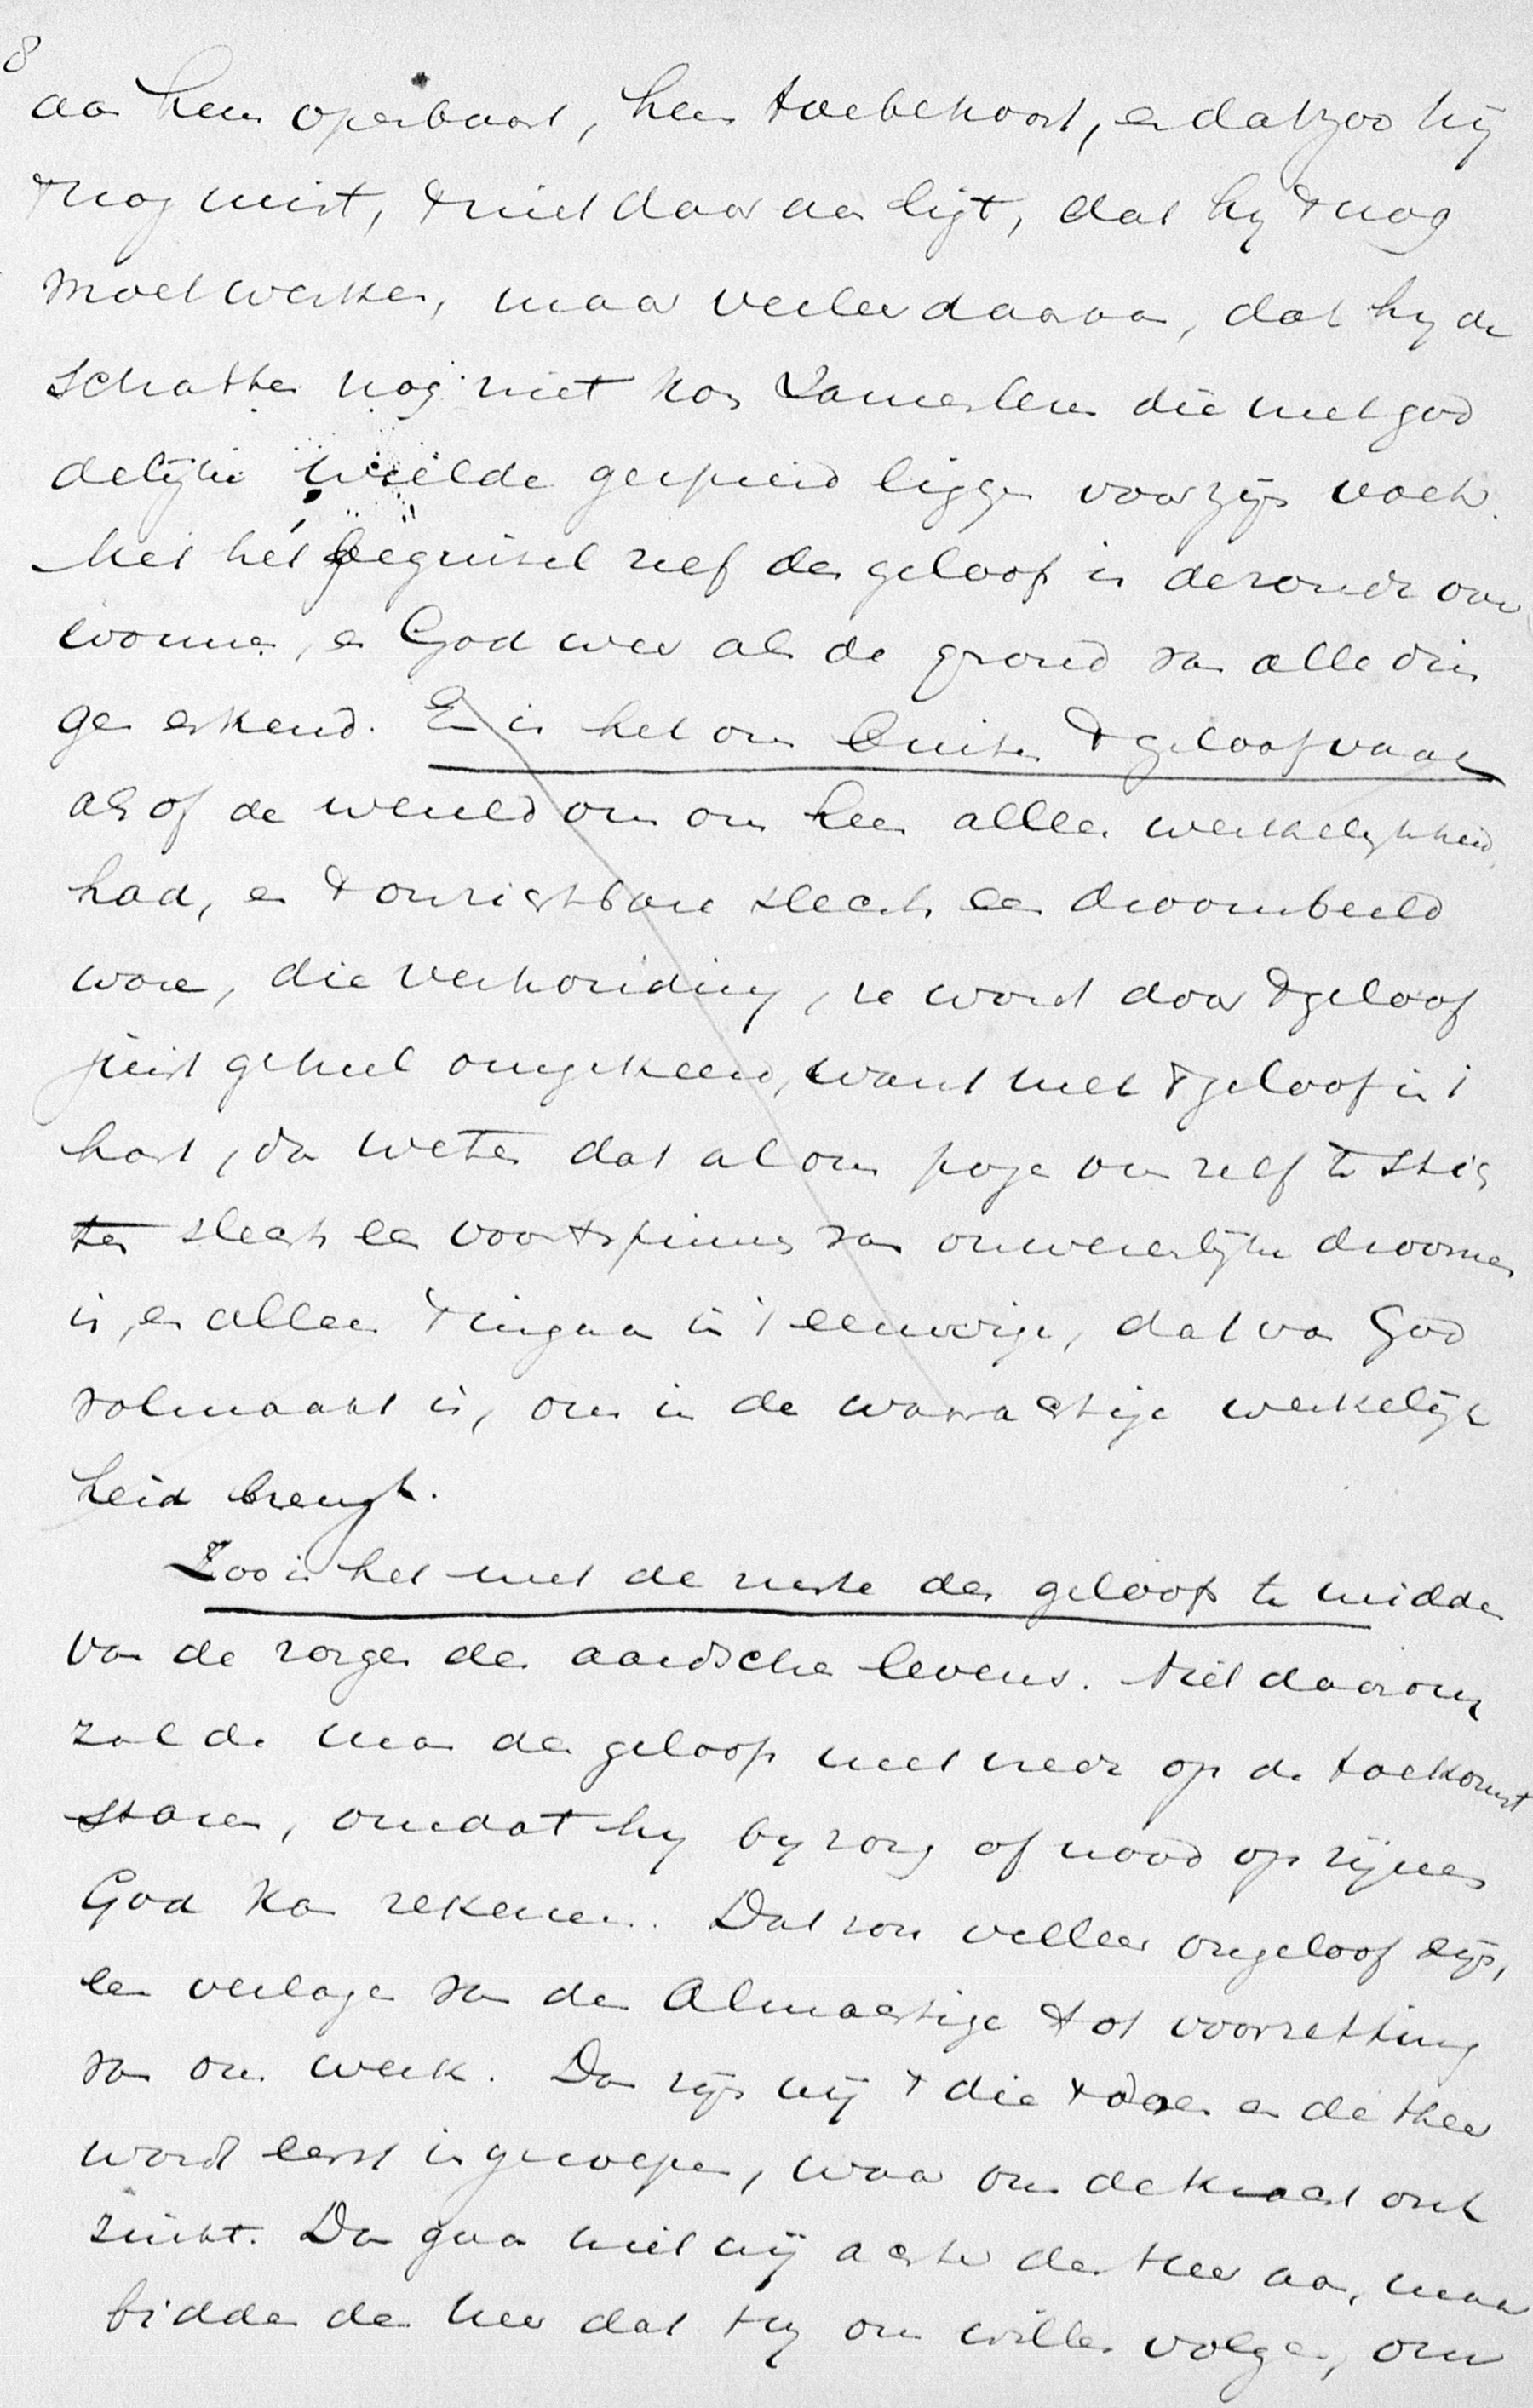 8
aan hem openbaart, hem toebehoort, en dat zoo hij
't nog mist, 't niet daar aan ligt, dat hij 't nog
moet werken, maar veeleer daaraan, dat hij de
schatten nog niet kon zamelen die met god
delijke weelde gespreid liggen voor zijn voeten.
Met het beginsel zelf des geloofs is de zonde over
wonnen, en God weer als de grond van alle din
gen erkend. En is het ons buiten 't geloof vaak
alsof de wereld om ons heen alleen werkelijkheid
had, en 't onzichtbare slechts een droombeeld
ware, die verhouding, ze wordt door 't geloof
juist geheel omgekeerd, want met 't geloof in 't
hart, dan weten dat al ons pogen om zelf te stich
ten slechts een voortspinnen van onwezenlijke droomen
is, en alleen 't ingaan in 't eeuwige, dat van God
volmaakt is, ons in de waarachtige werkelijk
heid brengt.
Zoo is het met de ruste des geloofs te midden
van de zorgen des aardschen levens. Niet daarom
zal de man des geloofs met vrede op de toekomst
staren, omdat hij bij zorg of nood op zijnen
God kan rekenen. Dat zou veeleer ongeloof zijn,
een verlagen van den Almachtige tot voortzetting
van ons werk. Dan zijn wij 't die 't doen en de Heer
wordt eerst ingeroepen, waar ons de kracht ont
zinkt. Dan gaan niet wij achter den Heer aan, maar
bidden den Heer dat Hij ons wille volgen, om